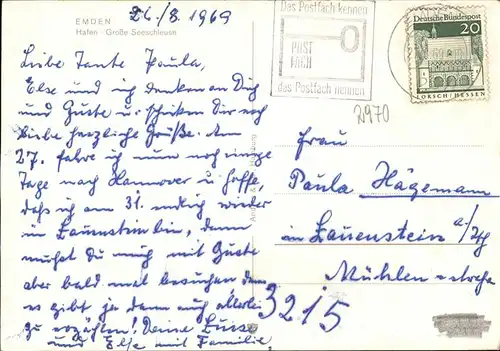 EMDEN
Hafen · Große Seeschleuse
26./8. 1969
Liebe Tante Paula,
Else und ich denken an Dich
und Guste u. schicken Dir recht
liebe herzliche Grüße. Am
27. fahre ich nun noch einige
Tage nach Hannover u. hoffe,
daß ich am 31. endlich wieder
in Lauenstein bin, dann
mußt Du mich mit Guste
aber bald mal besuchen, denn
es gibt ja dann auch allerlei
zu erzählen! Deine Luise
und Else mit Familie.
Das Postfach kennen
POST
FACH
das Postfach nennen
Deutsche Bundespost
20
LORSCH/HESSEN
2970
Frau
Paula Hägemann
in Lauenstein a/
Mühlenstraße
3215